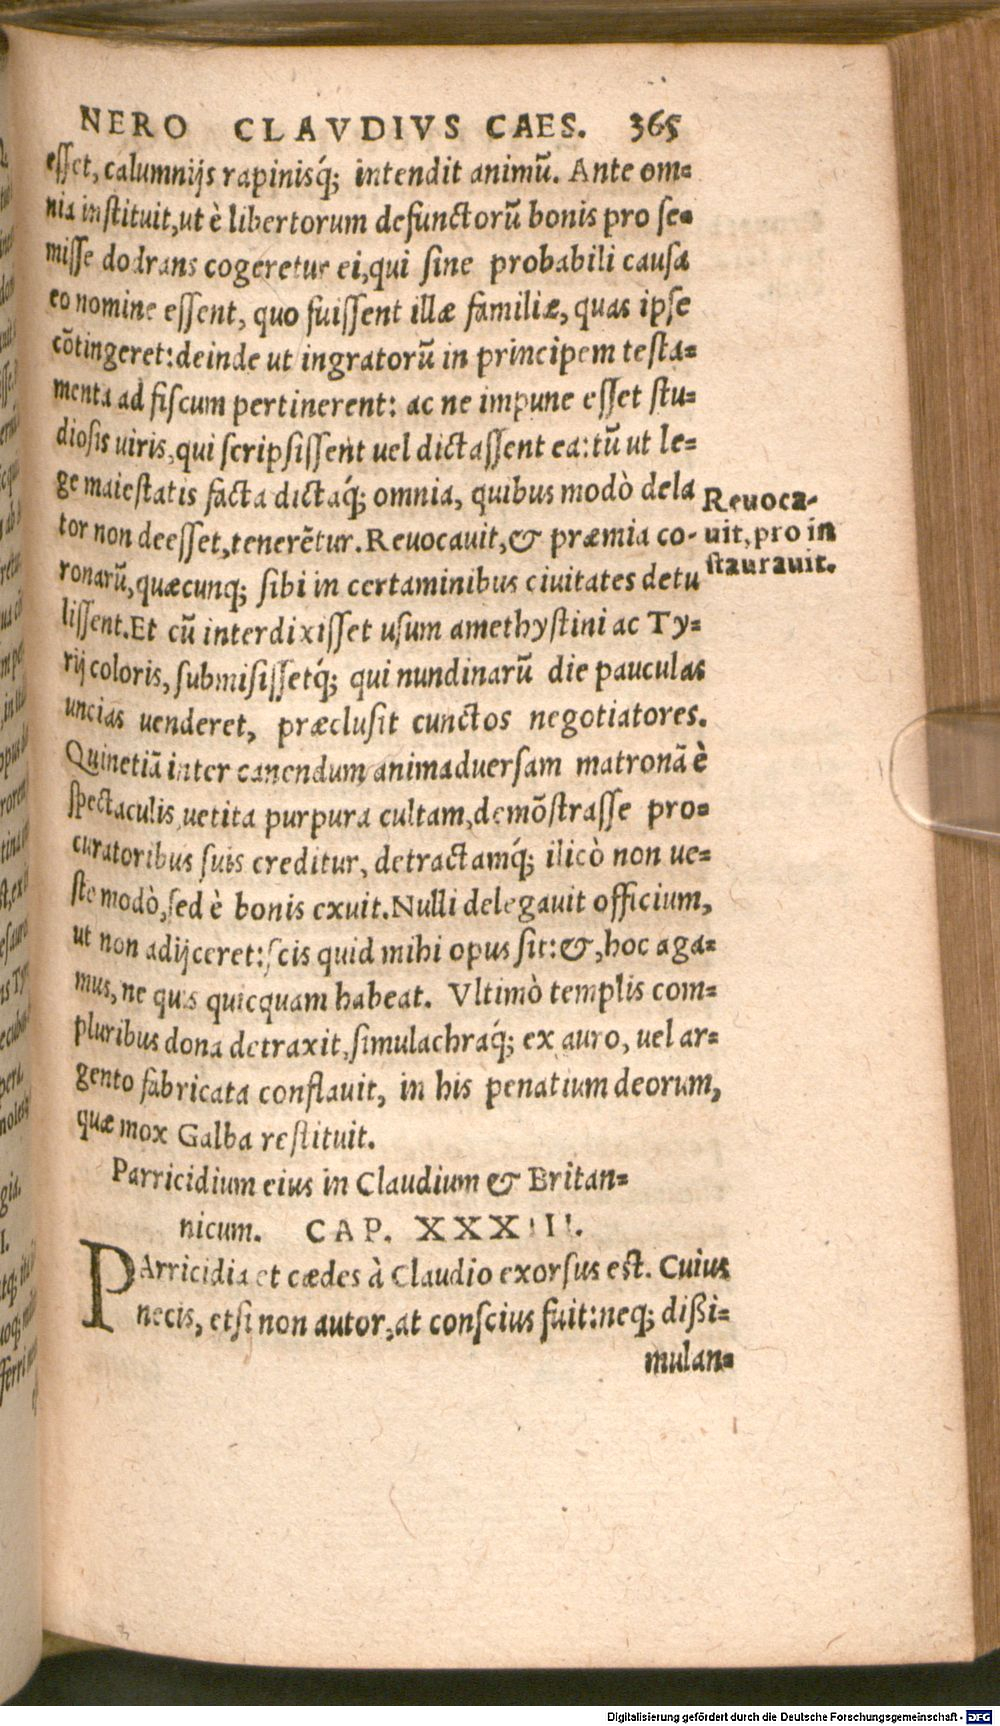 NERO CLAVDIVS CAES. 365
esset, calumnijs rapinisq́; intendit animū. Ante om=
nia instituit, ut è libertorum defunctorū bonis pro se=
misse dodrans cogeretur ei, qui sine probabili causa
eo nomine essent, quo fuissent illæ familiæ, quas ipse
cōtingeret: deinde ut ingratorū in principem testa=
menta ad fiscum pertinerent: ac ne impune esset stu=
diosis uiris, qui scripsissent uel dictassent ea: tū ut le=
ge maiestatis facta dictaq́; omnia, quibus modò dela
tor non deesset, tenerētur. Reuocauit, & præmia co-
ronarū, quæcunq; sibi in certaminibus ciuitates detu
lissent. Et cū interdixisset usum amethystini ac Ty=
rij coloris, submisissetq́; qui nundinarū die pauculas
uncias uenderet, præclusit cunctos negotiatores.
Quinetiā inter canendum animaduersam matronā è
spectaculis uetita purpura cultam, demōstrasse pro=
curatoribus suis creditur, detractamq́; ilicò non ue=
ste modò, sed è bonis exuit. Nulli delegauit officium,
ut non adijceret: scis quid mihi opus sit: &, hoc aga=
mus, ne quis quicquam habeat. Vltimò templis com=
pluribus dona detraxit, simulachraq́; ex auro, uel ar=
gento fabricata conflauit, in his penatium deorum,
quæ mox Galba restituit.
Reuoca-
uit, pro in
staurauit.
Parricidium eius in Claudium & Britan=
nicum. CAP. XXXIII.
PArricidia et cædes à Claudio exorsus est. Cuius
necis, etsi non autor, at conscius fuit: neq; dißi=
mulan=
Digitalisierung gefördert durch die Deutsche Forschungsgemeinschaft - DFG